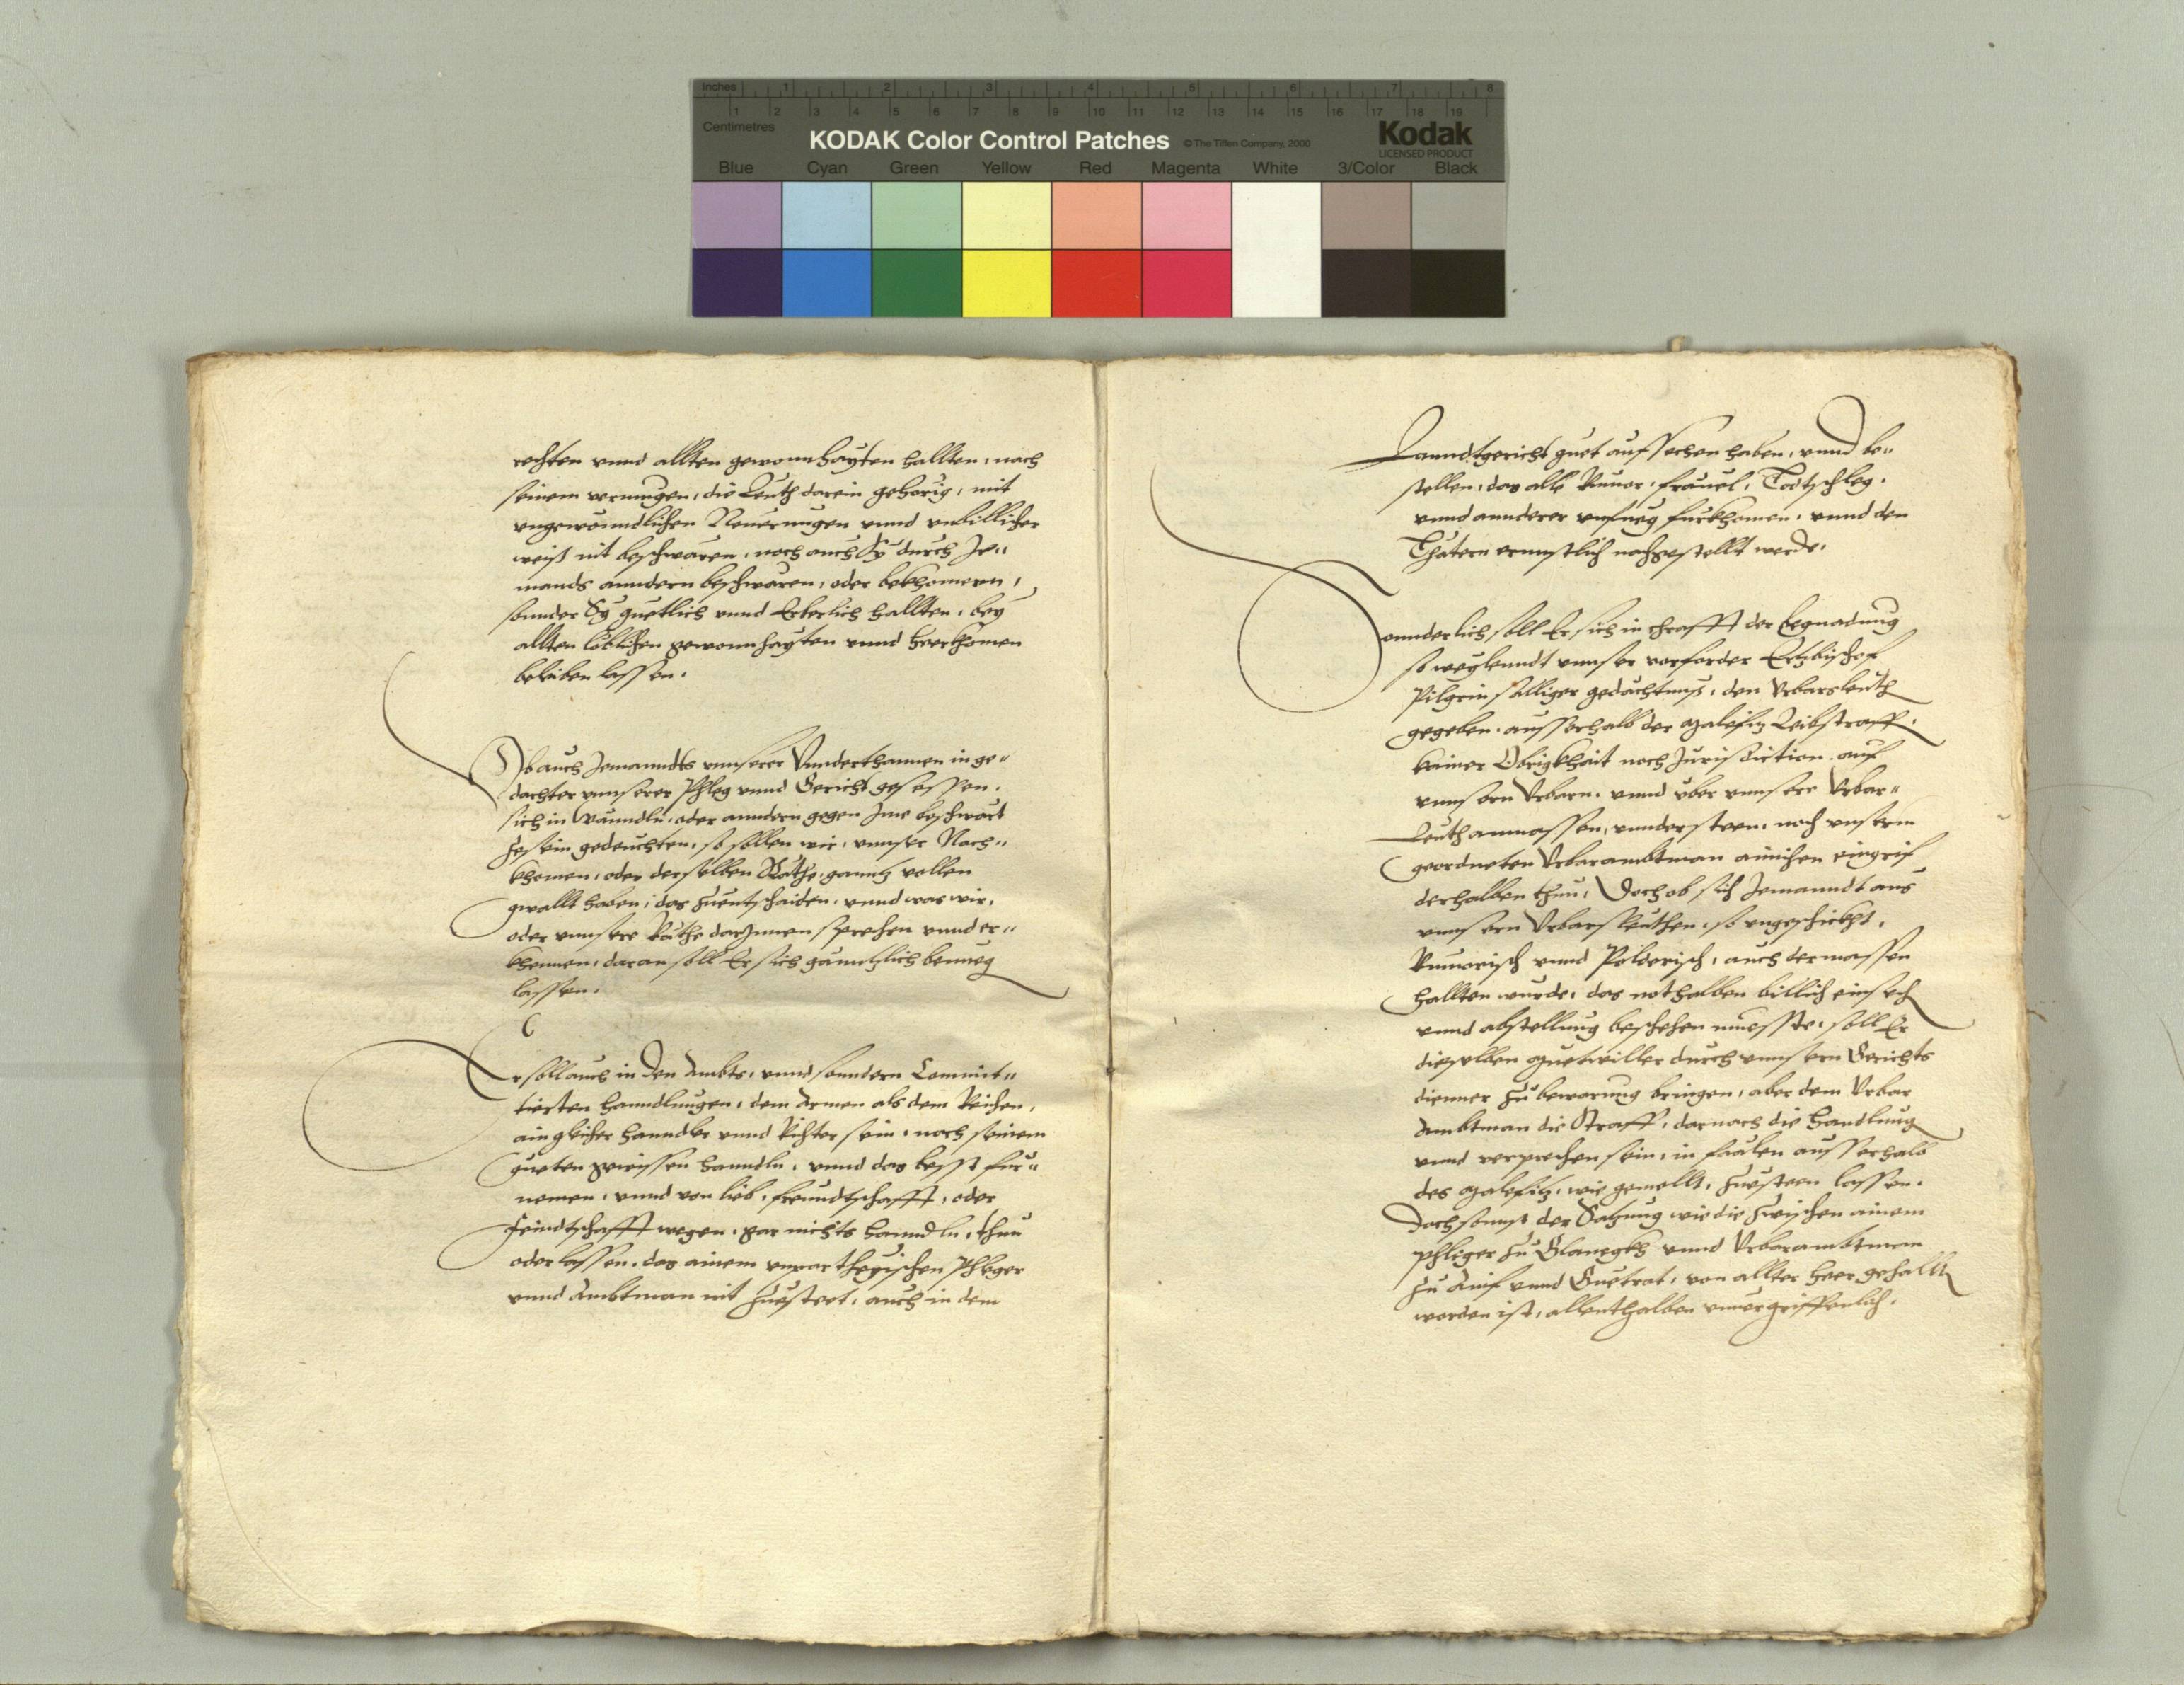 Inches 1 2 3 4 5 6 7 8
1 2 3 4 5 6 7 8 9 10 11 12 13 14 15 16 17 18 19
Centimetres
KODAK Color Control Patches © The Tiffen Company, 2000 Kodak
LICENSED PRODUCT
Blue Cyan Green Yellow Red Magenta White 3/Color Black
rechten vnnd allten gewonnhayten hallten, nach
seinem vermugen, die Leuth darein gehorig, mit
vngewonndlichen Neuerungen vnnd vnbillicher
weiß nit beschwären, noch auch Sÿ durch Je„
mands anndern beschwären, oder bekhomern,
sonnder Sÿ guetlich vnnd Erberlich hallten, beÿ
allten loblichen gewonnhayten vnnd heerkhomen
beleiben lassen.
Ob auch Jemanndts vnnserer Vnnderthannen in ge„
dachter vnnserer Phleg vnnd Gericht gesessen,
sich in wänndln, oder anndern gegen Jme beschwärt
ze sein gedeuchten, so sollen wir, vnnser Nach„
khomen, oder derselben Räthe, ganntz vollen
gwallt haben, das zuentschaiden, vnnd was wir,
oder vnnsere Räthe darJnnen sprechen vnnd er„
khennen, daran soll Er sich gänntzlich benueg
lassen.
Er soll auch in den Ambts, vnnd sonndern Commit„
tierten Hanndlungen, dem Armen als dem Reichen,
ain gleicher Hanndler vnnd Richter sein, nach seinem
gueten gewissen hanndln, vnnd das besst fur„
nemen, vnnd von lieb, freundtschafft, oder
feindtschafft wegen, gar nichts hanndln, thun
oder lassen, das ainem vnpartheyischen Phleger
vnnd Ambtman nit zuesteet, auch in dem
Lanndtgericht guet aufsechen haben, vnnd be„
stellen, das alle Rumor, fräuel, Todtschleg,
vnnd annderer vnfueg furkhomen, vnnd den
Thätern ernnstlich nachgestellt werde.
Sonnderlich soll Er sich in chrafft der begnadung
so weylenndt vnnser vorforder Ertzbischof
Pilgrin sälliger gedächtnuß, den Vrbarsleuth
gegeben, ausserhalb der Malefitz Leibstraff,
keiner Obrigkhait noch Jurisdiction auf
vnnsern Vrbarn, vnnd vber vnnsere Vrbar„
Leuth anmassen, vndersteen, noch vnserm
geordneten Vrbarambtman ainichen eingrif
derhalben thun, Doch ob sich Jemanndt aus
vnnsern Vrbarsleuthen, so vngeschickht,
Rumorisch vnnd Polderisch, auch dermassen
hallten wurde, das nothalben billich einsech
vnnd abstellung beschehen muesste, soll Er
dieselben Muetwiller durch vnnsern Gerichts
diennner zu bewarung bringen, aber dem Vrbar
Ambtman die Straff, darnach die Handlung
vnnd verprechen sein, in fäalen ausserhalb
des Malefitz, wie gemellt, zuesteen lassen.
Doch sonnst der Satzung wie die zwischen ainem
Phleger zu Glanegkh vnnd Vrbarambtman
zu Anif vnnd Guetrat, von allter heer gehallt
worden ist, allenthalben vnuergriffenlich.